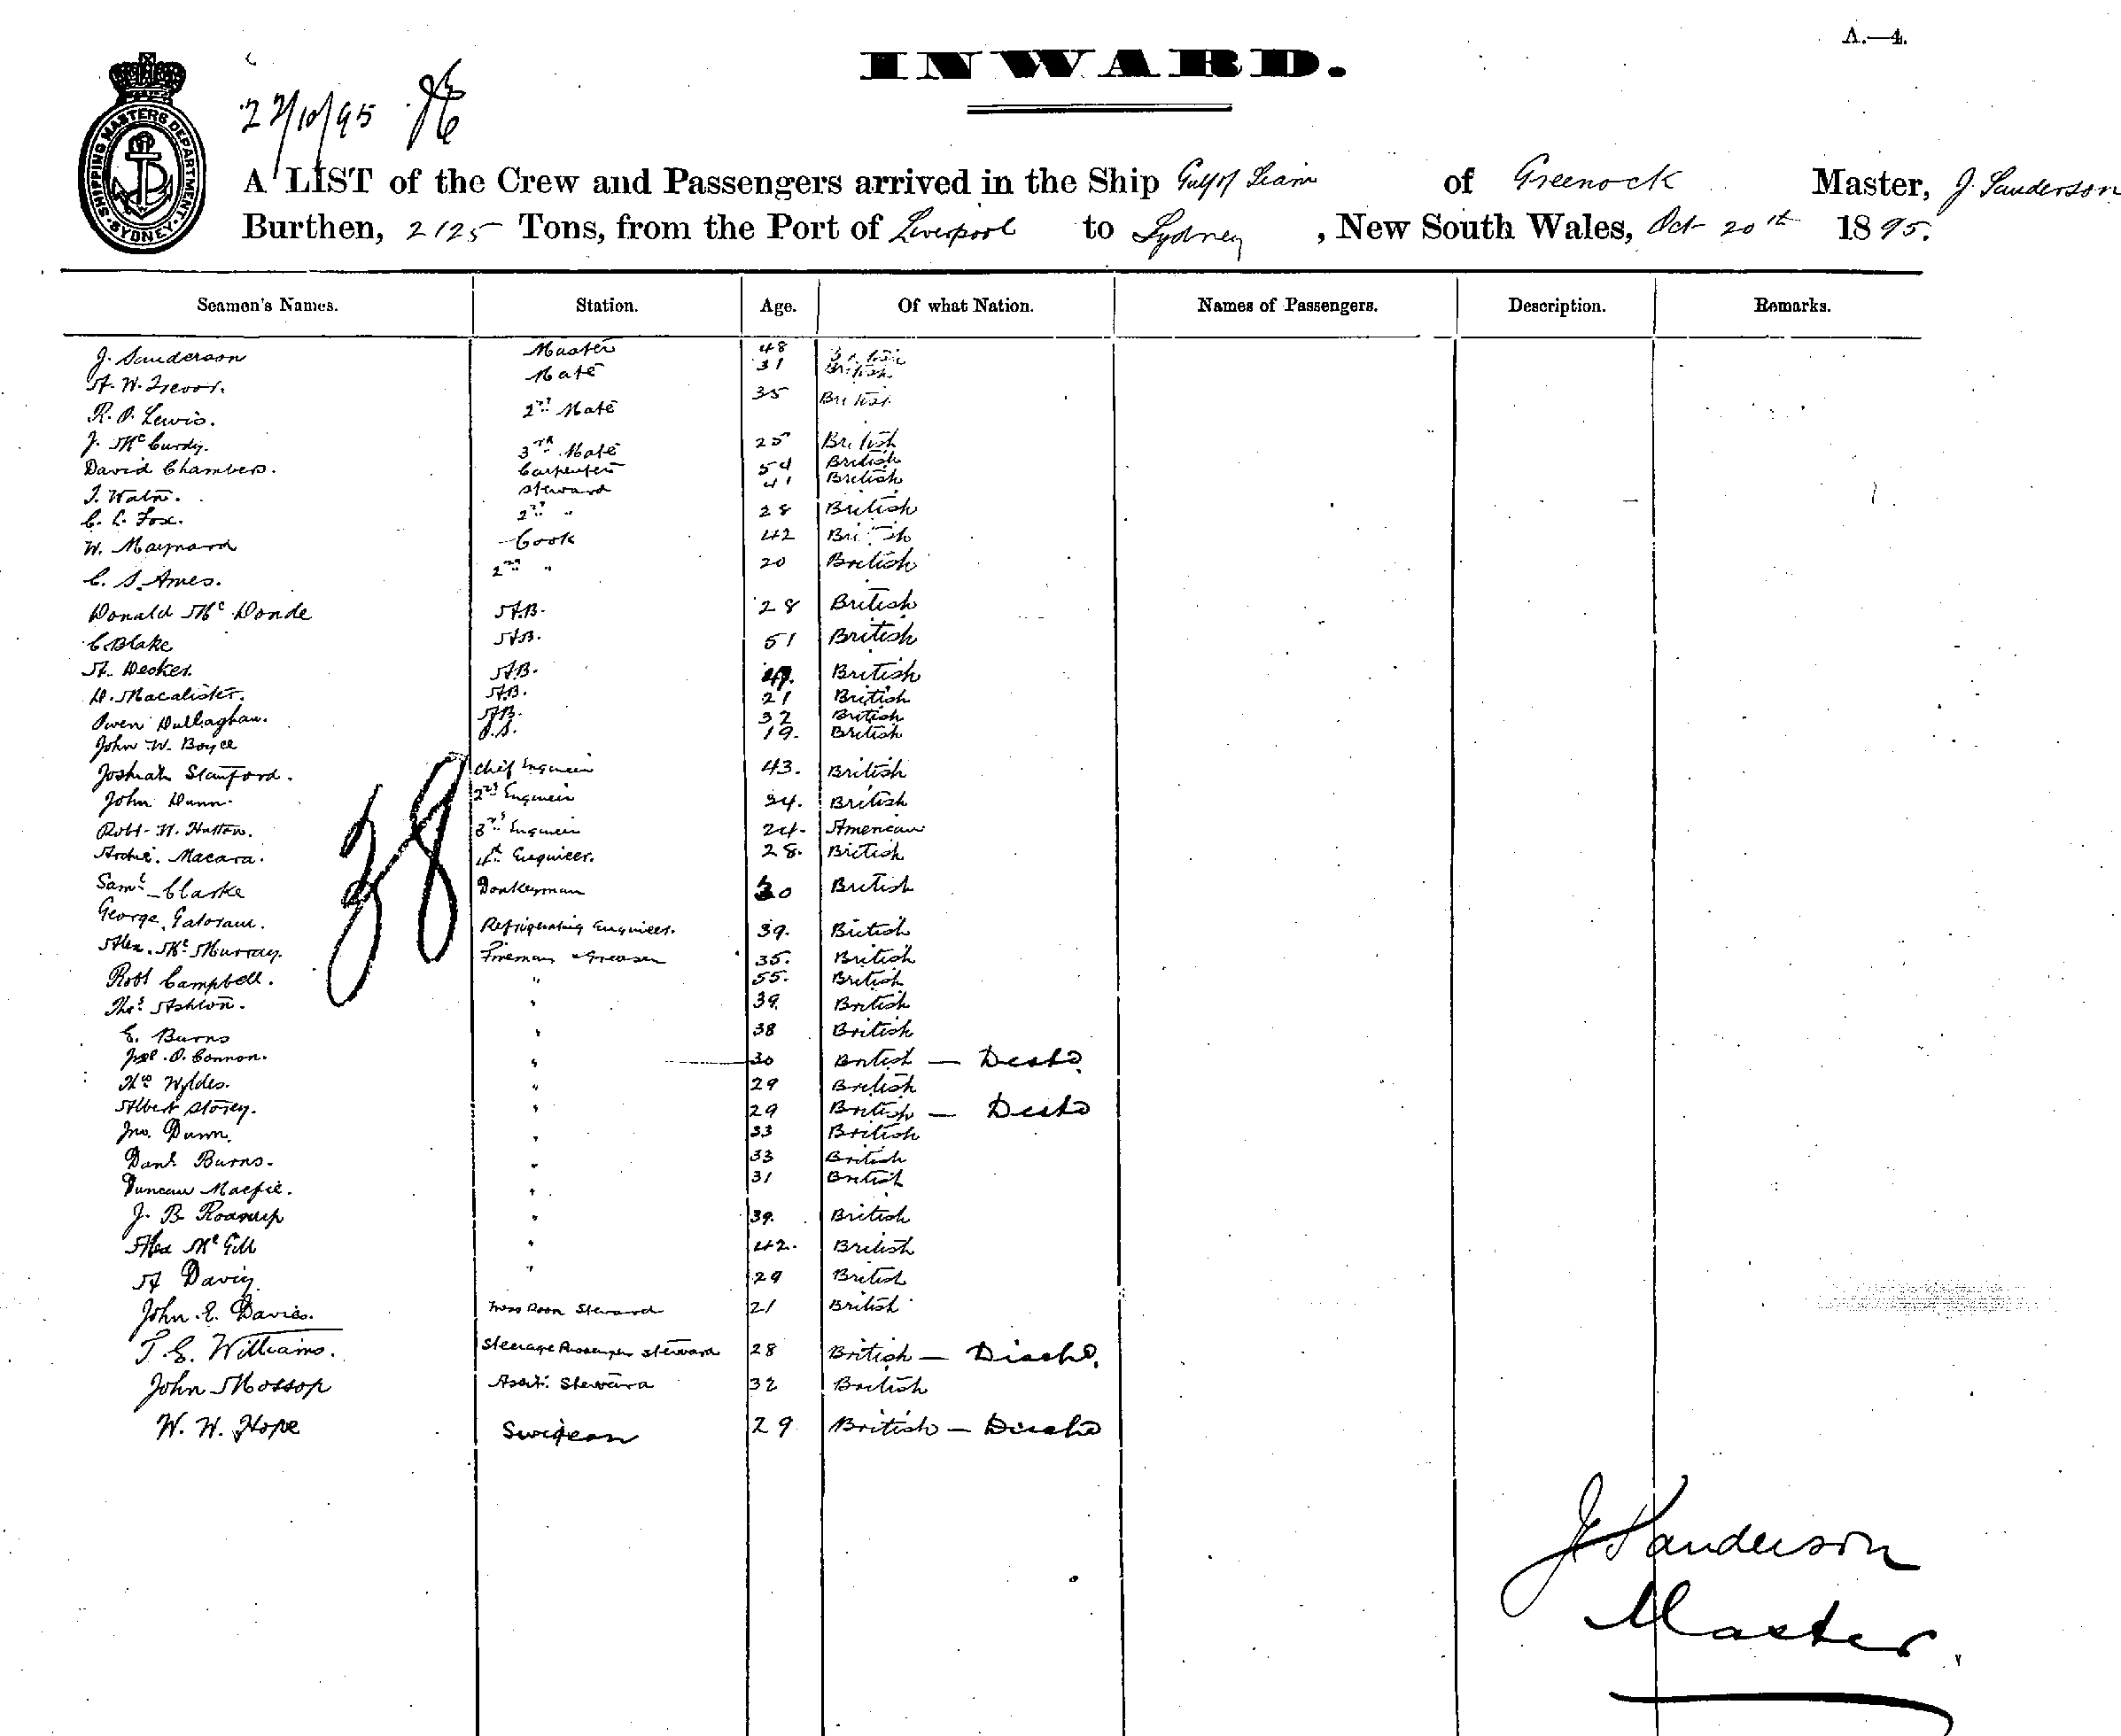 A.—4.
INWARD.
22/10/95
SHIPPING MASTERS DEPARTMENT. SYDNEY
A LIST of the Crew and Passengers arrived in the Ship Gulf of Siam of Greenock Master, J. Sanderson
Burthen, 2125 Tons, from the Port of Liverpool to Sydney, New South Wales, Oct 20th 1895.
Seamen's Names. Station. Age. Of what Nation. Names of Passengers. Description. Remarks.
J. Sanderson Master 48 British
A. W. Trevor. Mate 31 British
R. O. Lewis. 2nd Mate 35 British
J. McCurdy. 3rd Mate 25 British
David Chambers. Carpenter 54 British
Steward 41 British
C. L. Fox. 2nd " 28 British
W. Maynard Cook 42 British
C. S. Ames. 2nd " 20 British
Donald Mc Donde A.B. 28 British
C. Blake A.B. 51 British
A. Decker. A.B. British
D. Macalister. A.B. 21 British
Owen Dullaghan. A.B. 32 British
John W. Boyce O.S. 19. British
Joshiah Stanford. Chief Engineer 43. British
John Dunn. 2nd Engineer 34. British
Robt. W. Hatton. 3rd Engineer 24. American
Archie. Macara. 4th Engineer. 28. British
Saml Clarke Donkeyman 30 British
George Refrigerating Engineer. 39. British
Alex. McMurray. Fireman & Greaser 35. British
Robt Campbell. " 55. British
Thos. Ashton. " 39. British
E. Burns " 38 British
O. Connor. " 30 British — Desd
Thos Wyldes. " 29 British
Albert Storey. " 29 British — Desd
Jno. Dunn. " 33 British
Danl. Burns. " 33 British
Duncan Macfie. " 31 British
J. B. " 39. British
Alex McGill " 42. British
A " 29 British
John. E. Davies. Mess Room Steward 21 British
T. E. Williams. Steerage Passenger Steward 28 British — Dischd.
John Mossop Asst. Steward 32 British
W. W. Hope Surgeon 29 British — Dischd
38
J Sanderson
Master.